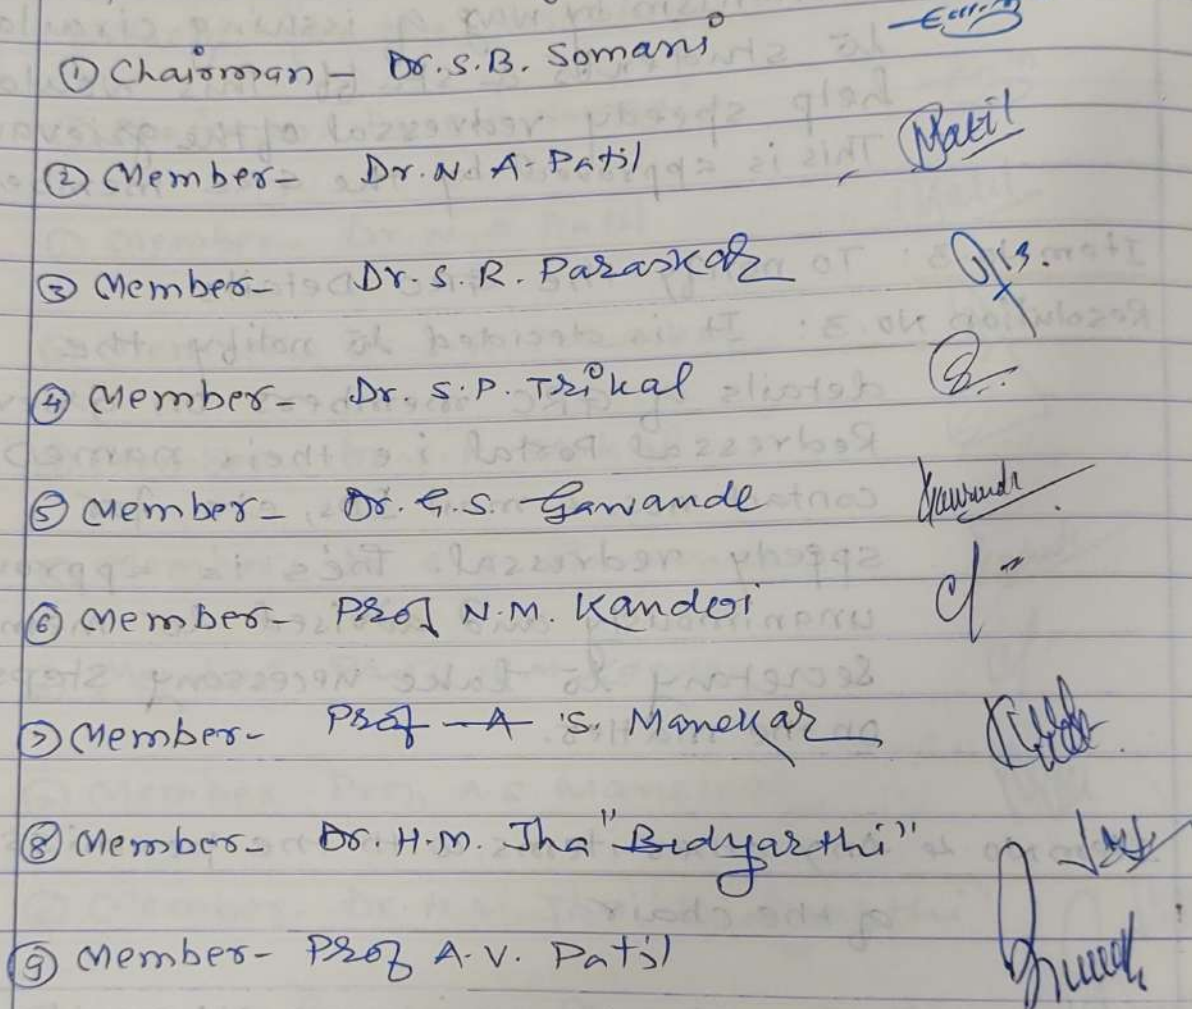 ① Chairman - Dr. S. B. Somani
② Member - Dr. N. A. Patil
③ Member - Dr. S. R. Paraskar
④ Member - Dr. S. P. Trikal
⑤ Member - Dr. G. S. Gawande
⑥ Member - Prof N. M. Kanderi
⑦ Member - Prof A S. Manekar
⑧ Member - Dr. H. M. Jha "Bidyarthi"
⑨ Member - Prof A. V. Patil